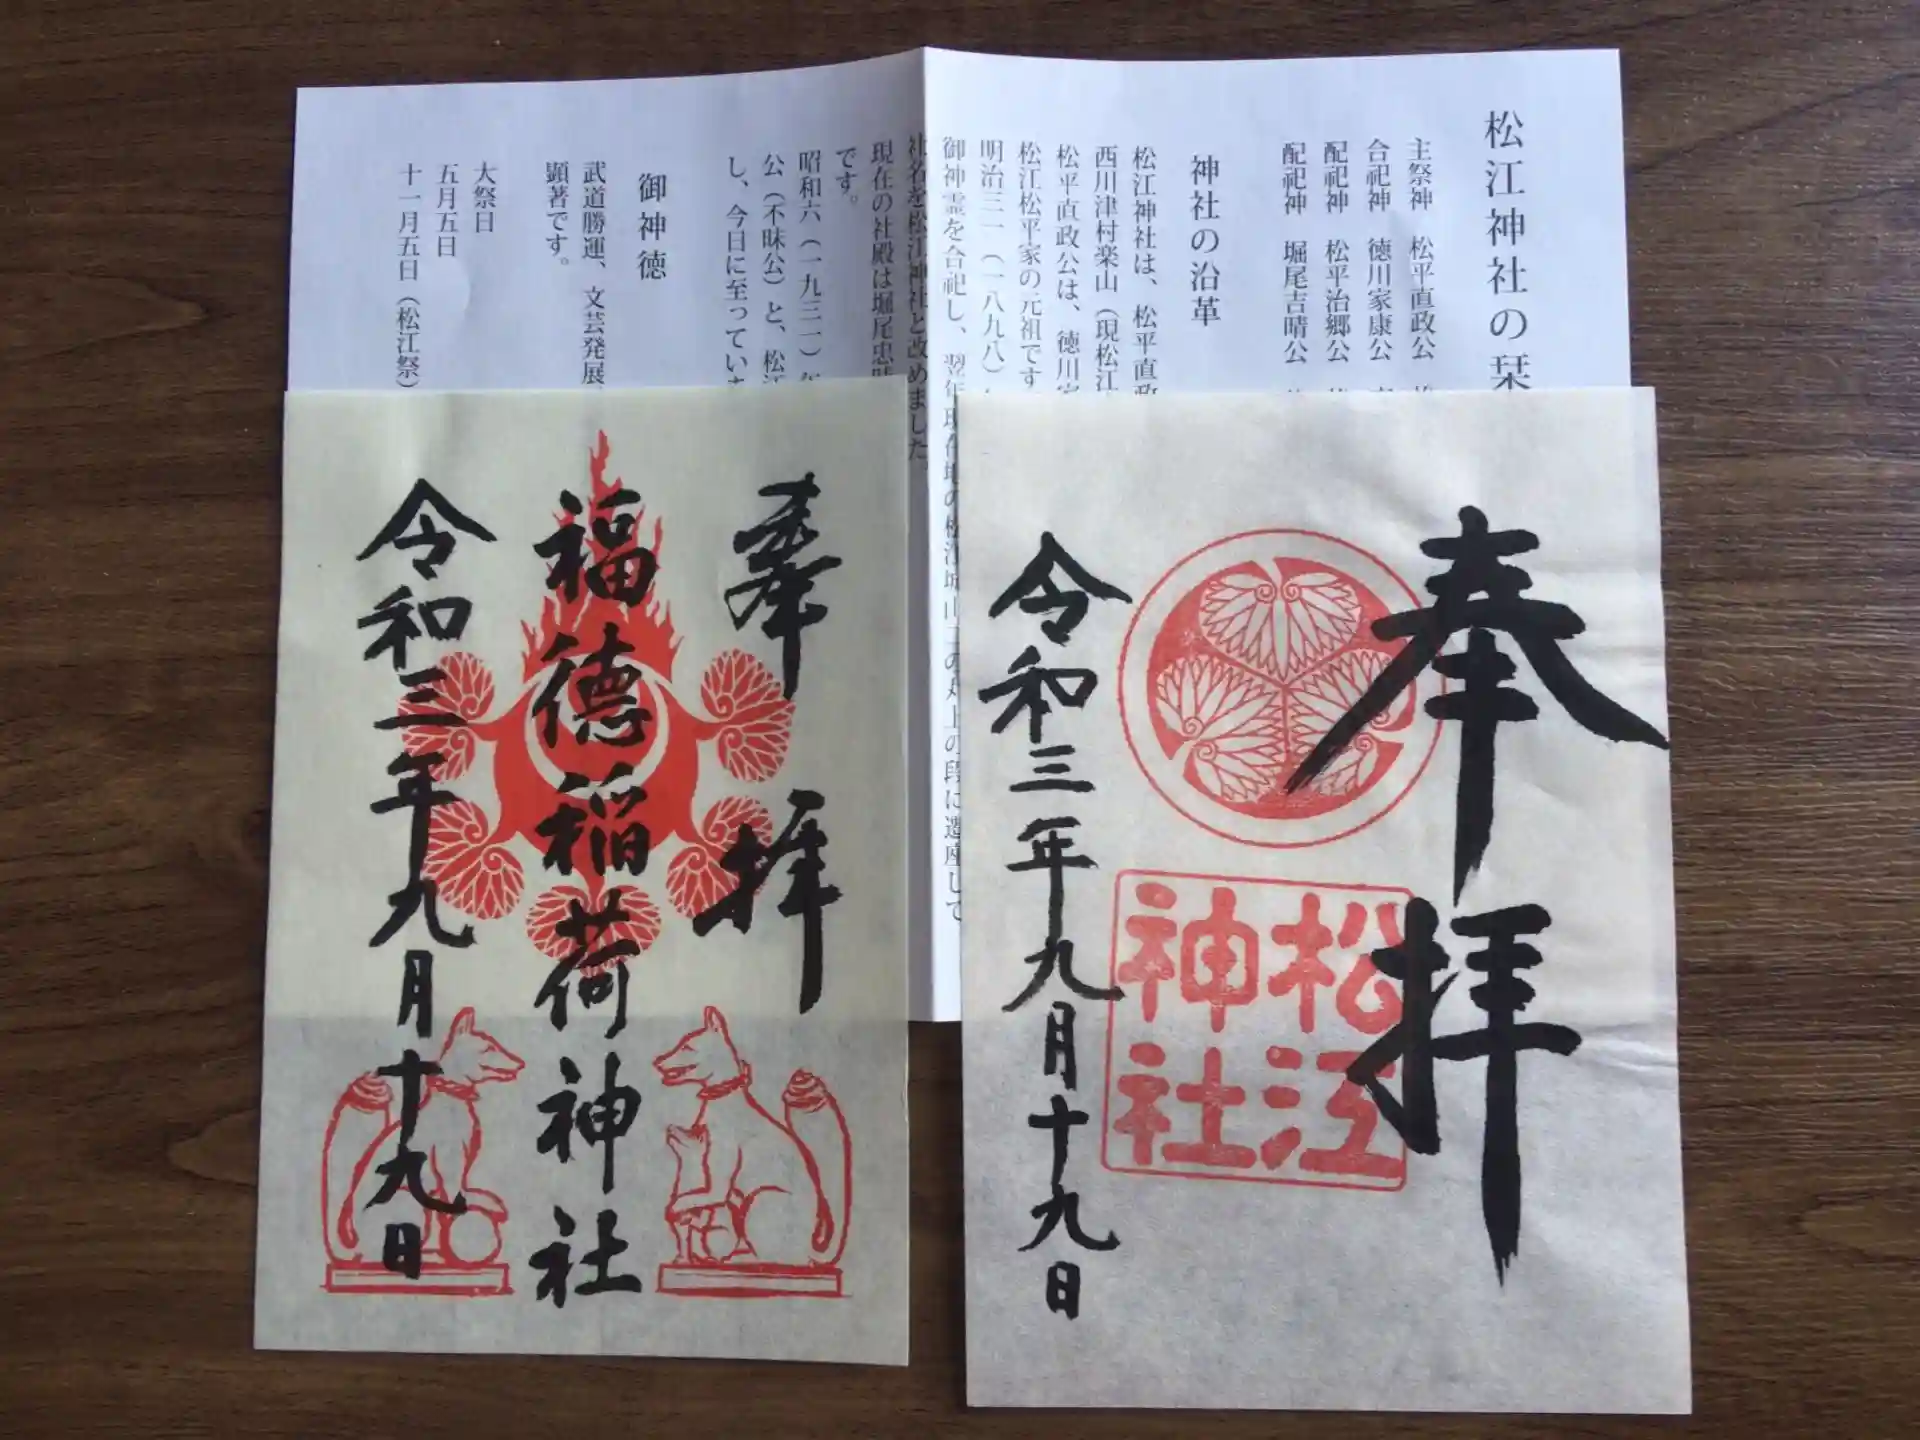 松江神社の栞
主祭神 松平直政公
合祀神 徳川家康公
配祀神 松平治郷公
配祀神 堀尾吉晴公
神社の沿革
松江神社は、松平直政
西川津村楽山(現松江
松平直政公は、徳川家
松江松平家の元祖です
明治三一(一八九八)
御神霊を合祀し、翌年現在地の松江城山二の丸上の段に遷座して
社名を松江神社と改めました。
現在の社殿は堀尾忠晴
です。
昭和六(一九三一)年
公(不昧公)と、松江
し、今日に至ってい
御神徳
武道勝運、文芸発展、
顕著です。
大祭日
五月五日
十一月五日(松江祭)
奉拝
松江
神社
令和三年九月十九日
奉拝
福徳稲荷神社
令和三年九月十九日